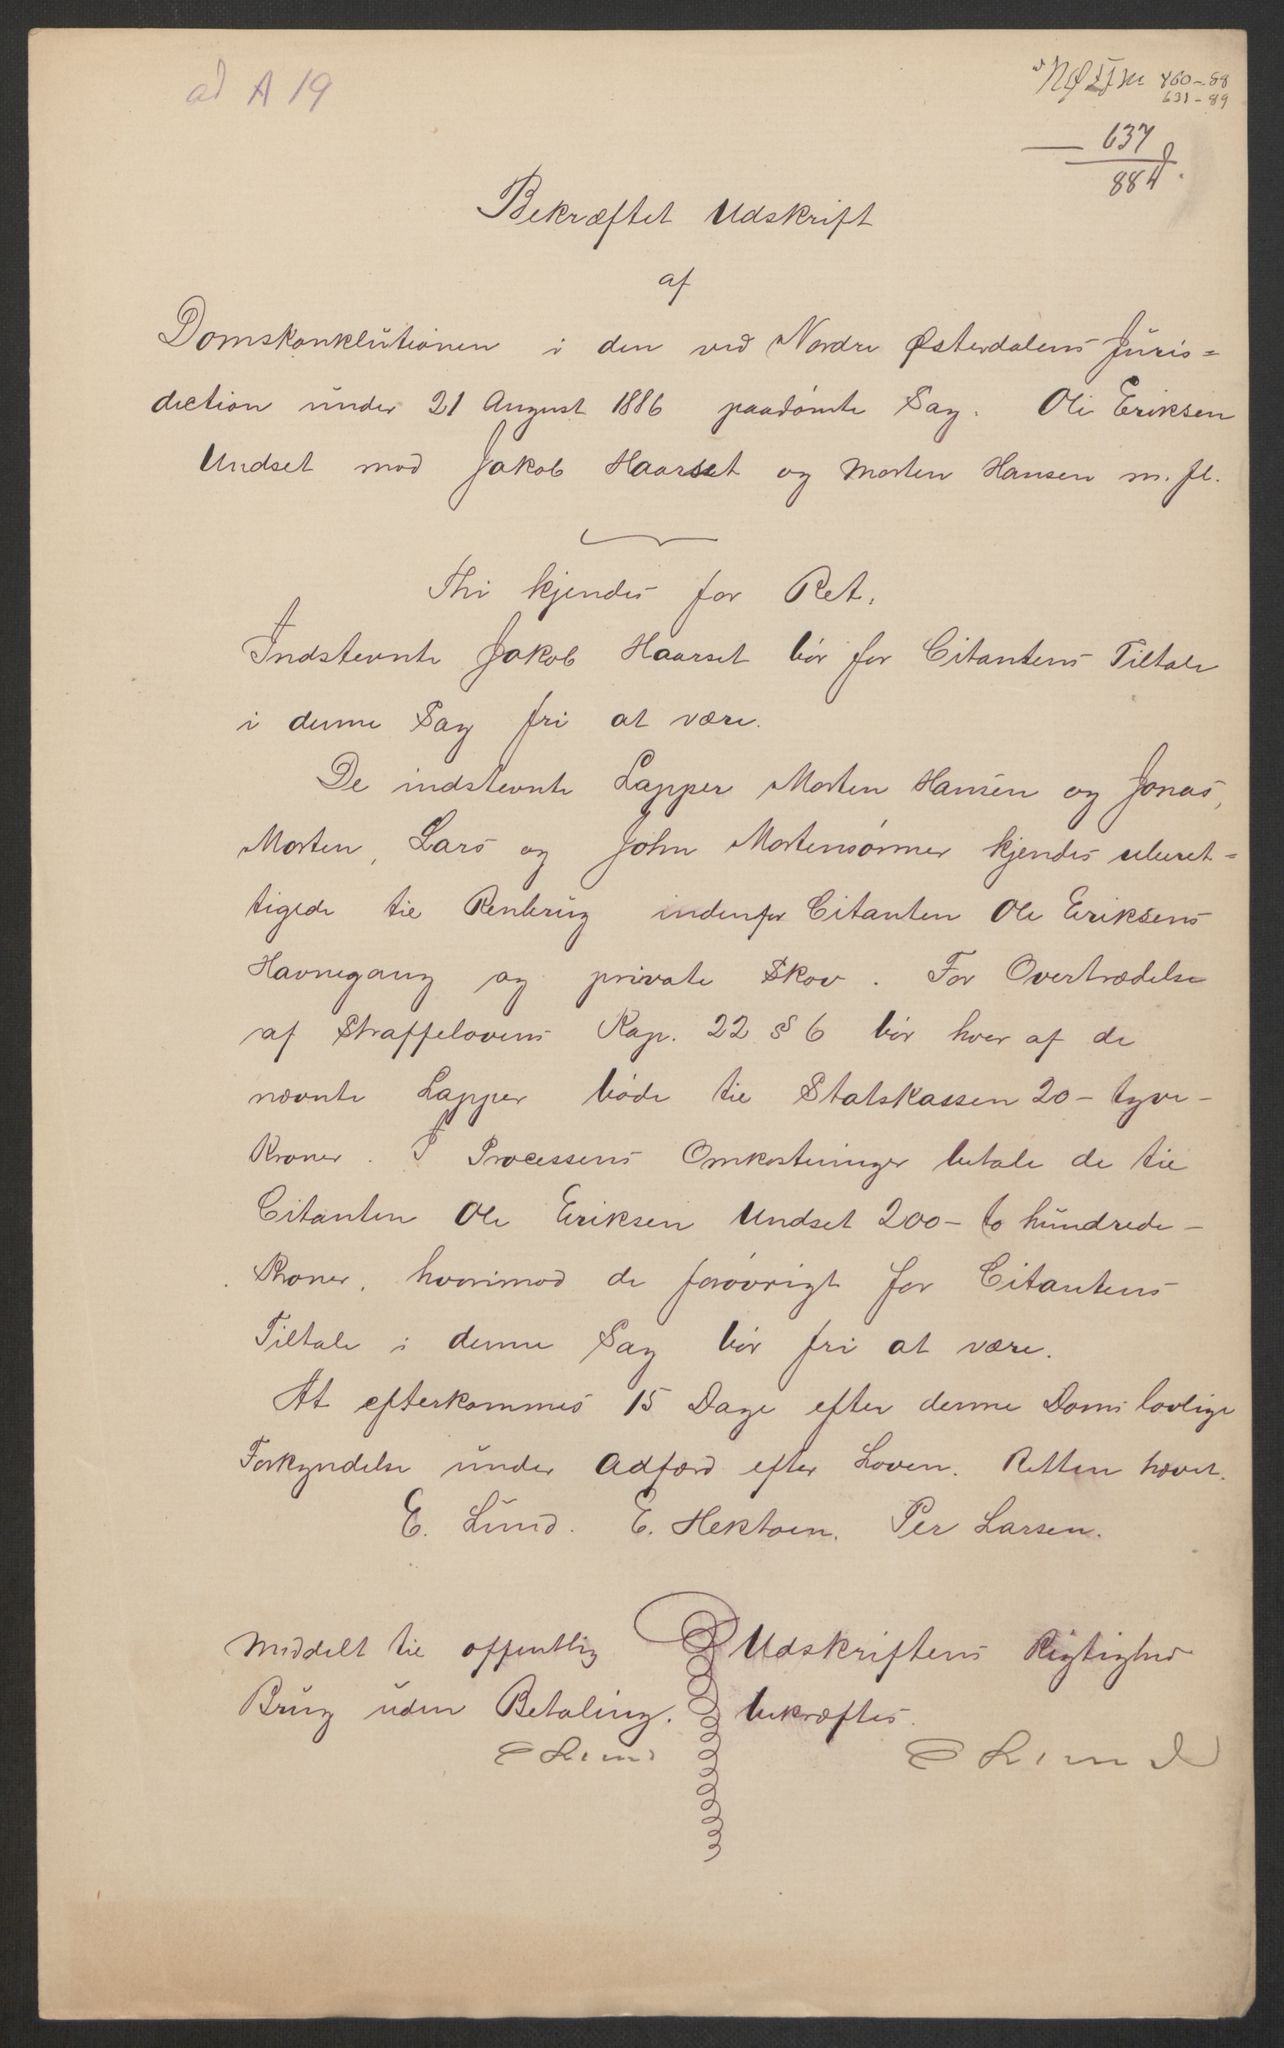 ad A 19
460-88
631-89
637
884
Bekræftet Udskrift
af
Domskonklutionen i den ved Nordre Østerdalens Juris=
diction under 21 August 1886 paadömte Sag. Ole Eriksen
Undset mod Jakob Haarset og Morten Hansen m. fl.
Thi kjendes for Ret.
Indstevnte Jakob Haarset bör for Citantens Tiltale
i denne Sag fri at være.
De indstevnte Lapper Morten Hansen og Jonas,
Morten, Lars og John Mortensönner kjendes uberet=
tigede til Renbrug indenfor Citanten Ole Eriksens
Havnegang og private Skov. For Overtrædelse
af Straffelovens Kap. 22 § 6 bör hver af de
nævnte Lapper böde til Statskassen 20 - tyve -
Kroner. I Processens Omkostninger betale de til
Citanten Ole Eriksen Undset 200 - to hundrede -
Kroner, hvorimod de forövrigt for Citantens
Tiltale i denne Sag bör fri at være.
At efterkommes 15 Dage efter denne Doms lovlige
Forkyndelse under Adfærd efter Loven. Retten hævet.
E. Lund. E. Hektoen. Per Larsen.
Meddelt til offentlig
Brug uden Betaling.
E Lund
Udskriftens Rigtighed
bekræftes.
E Lund